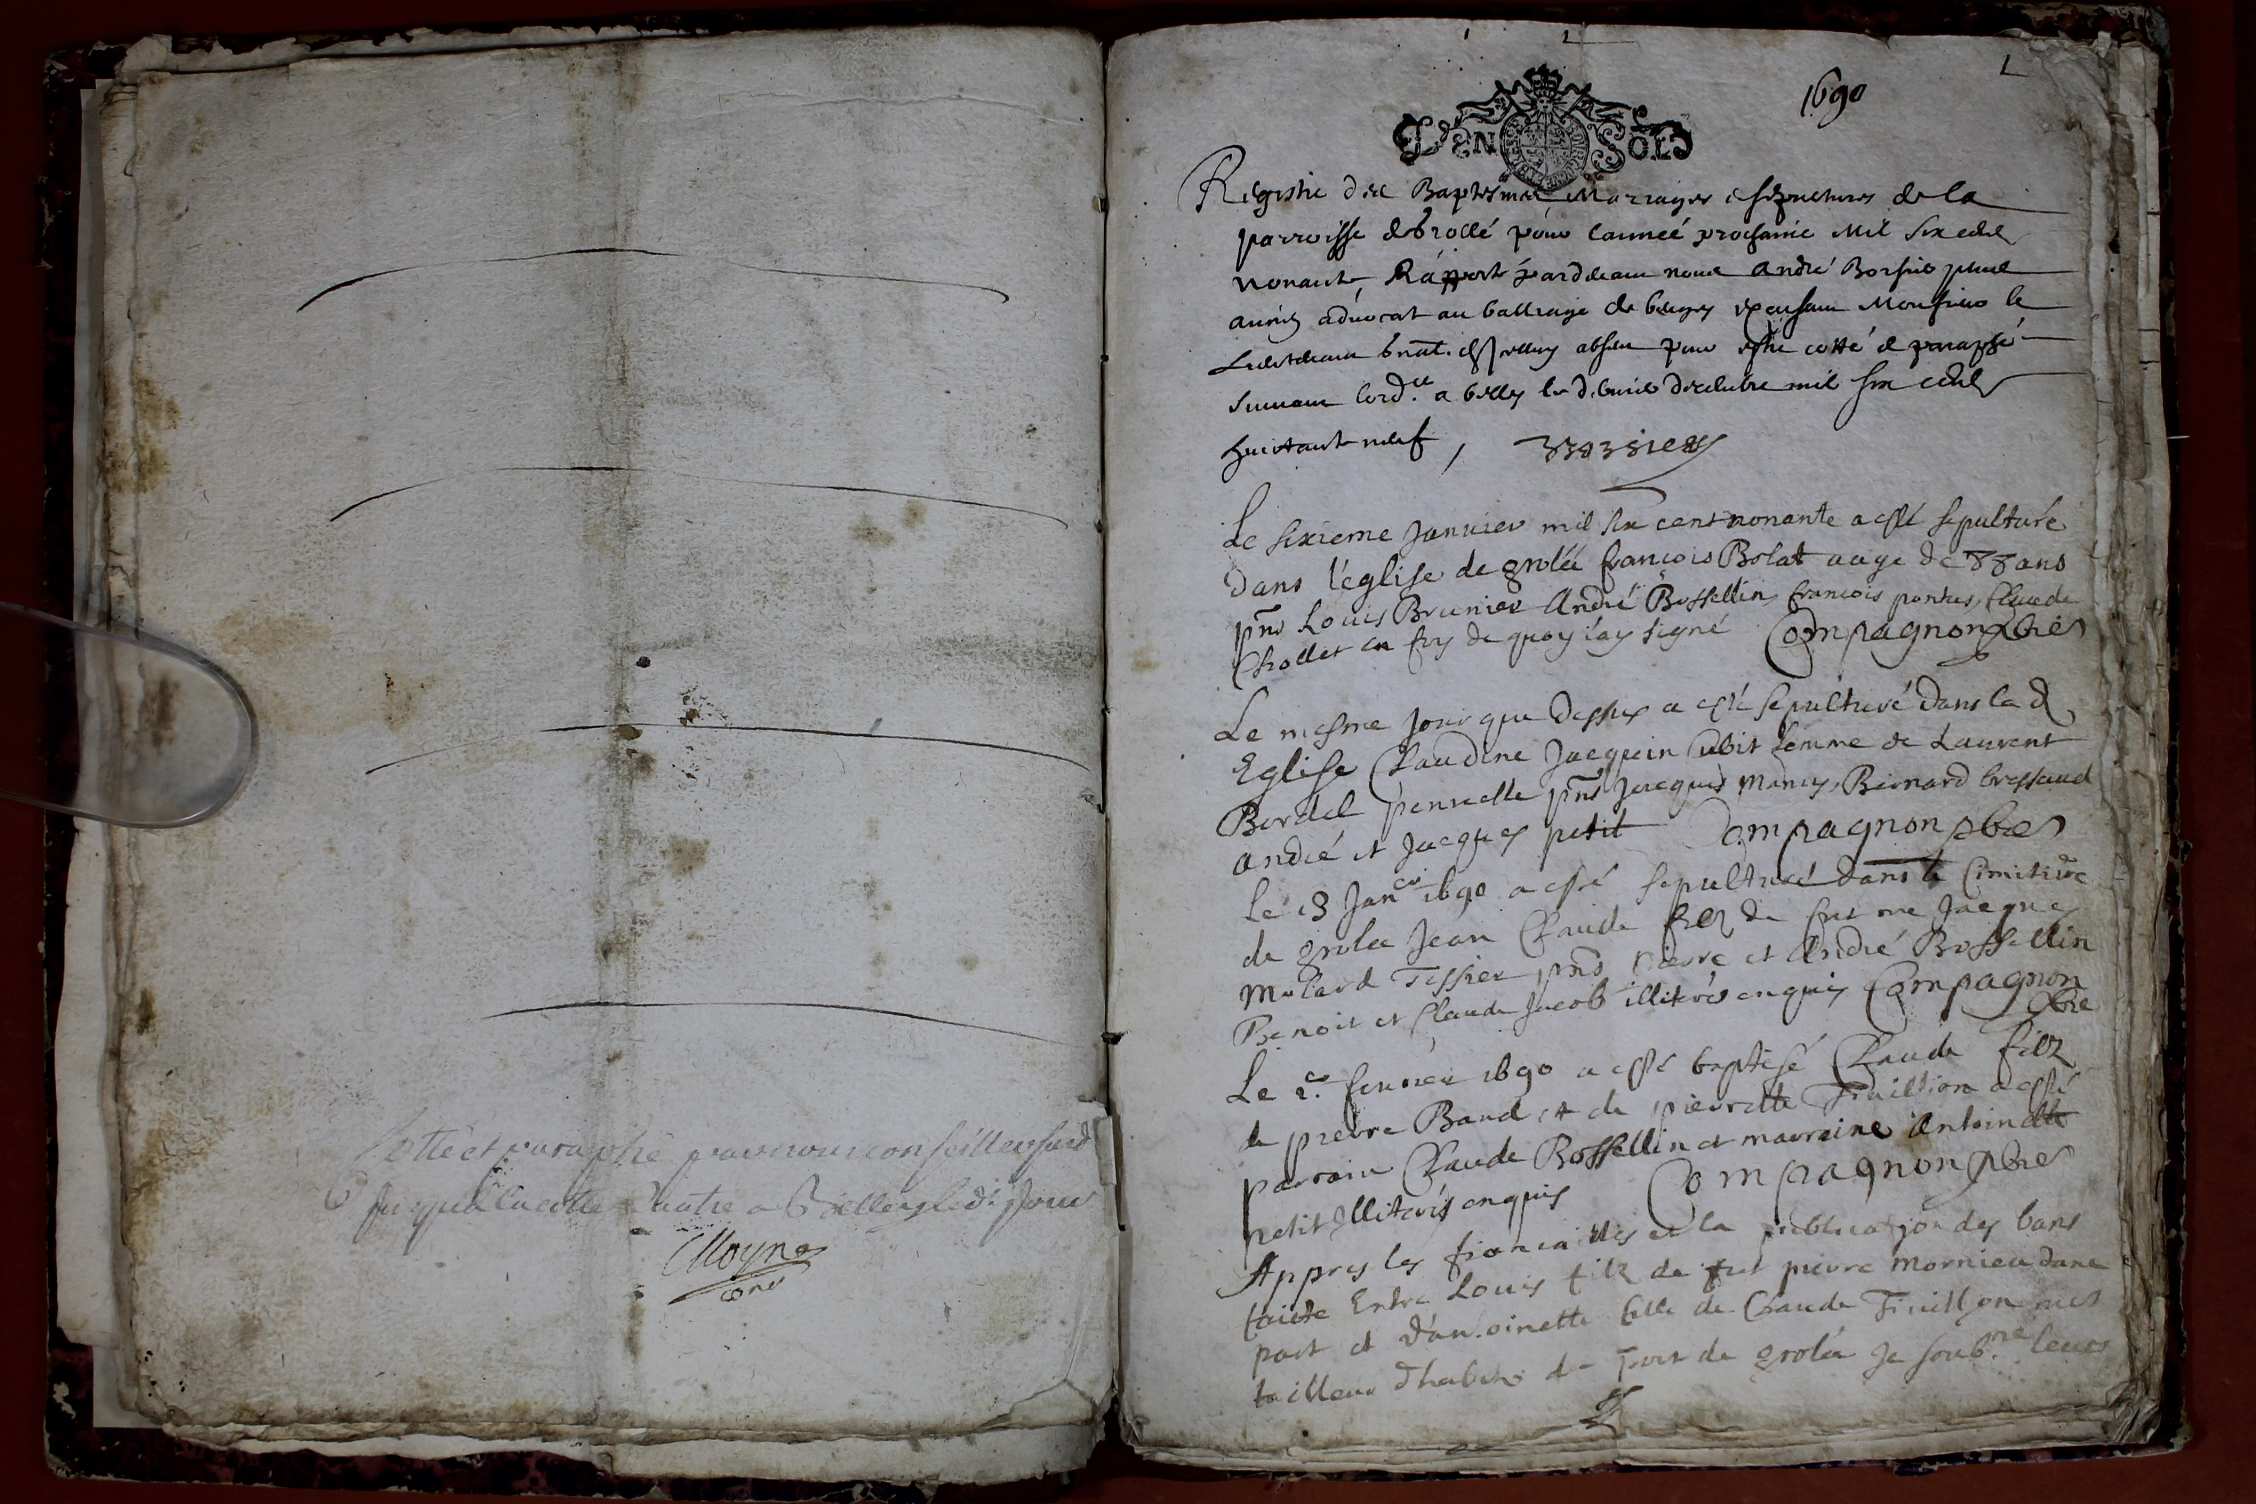 Cotté et paraphé par nous conseiller susd
jusqua la cotte quatre a Belley led. jour
Moyne
1
1690
DEN SOLD
Registre des Baptesmes Mariages & sepultures de la
parroisse de Grollé pour l'année prochaine Mil six cens
nonante, Raporté pardevant nous André Borsier plus
advocat au balliage de beugey Monsieur le
Lieutenant absent pour estre cotté & paraphé
suivant l'ord.ce a belley le decembre mil six cens
huictante neuf,
Le sixieme Janvier mil six cens nonante a esté sepulturé
dans l'eglise de grolée françois Bolat aage de 88 ans
pns Louis Brunier André Bossellin, françois pontus, Claude
Chollet en foy de quoy i'ay signé Compagnon pbre
Le mesme jour que dessus a esté sepulturé dans lad
Eglise Claudine Jacquin femme de Laurent
Bordel pns Jacques Bernard bressand
André et Jacques petit Compagnon pbre
Le 13 Janer 1690 a esté sepulturé dans le Cimitiere
de grolée Jean Claude filz de fut me Jacques
Molard Tissier pns pierre et André Bossellin
Benoit et Claude Jacob illiterés enquis Compagnon
pbre
Le 2e fevrier 1690 a esté baptisé Claude filz
de pierre Band et de pierrette Truillion a esté
parrain Claude Bossellin et marraine Antoinette
petit Illiterés enquis Compagnon pbre
Appres les fiançailles et la publication des bans
faicte Entre Louis filz de fut pierre Mornieu dune
part et d'antoinette fille de Claude Truillion mes
tailleur d'habits de port de grolée Je soub.né leurs